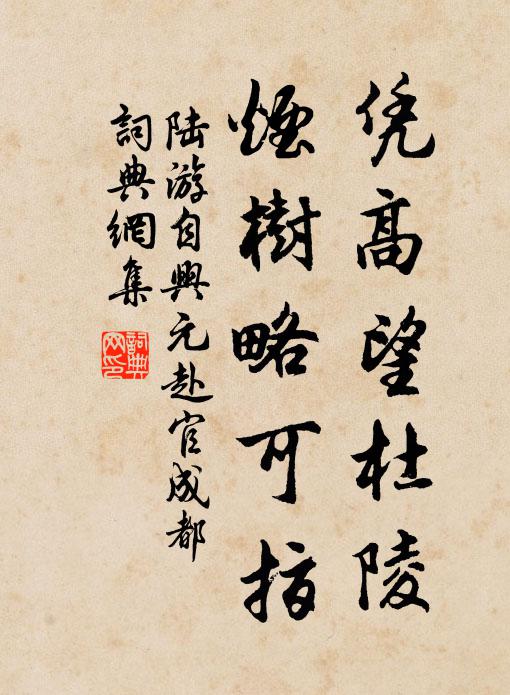 凭高望杜陵
煙樹略可指
陆游自興元赴官成都
詞典網集
詞典
网印